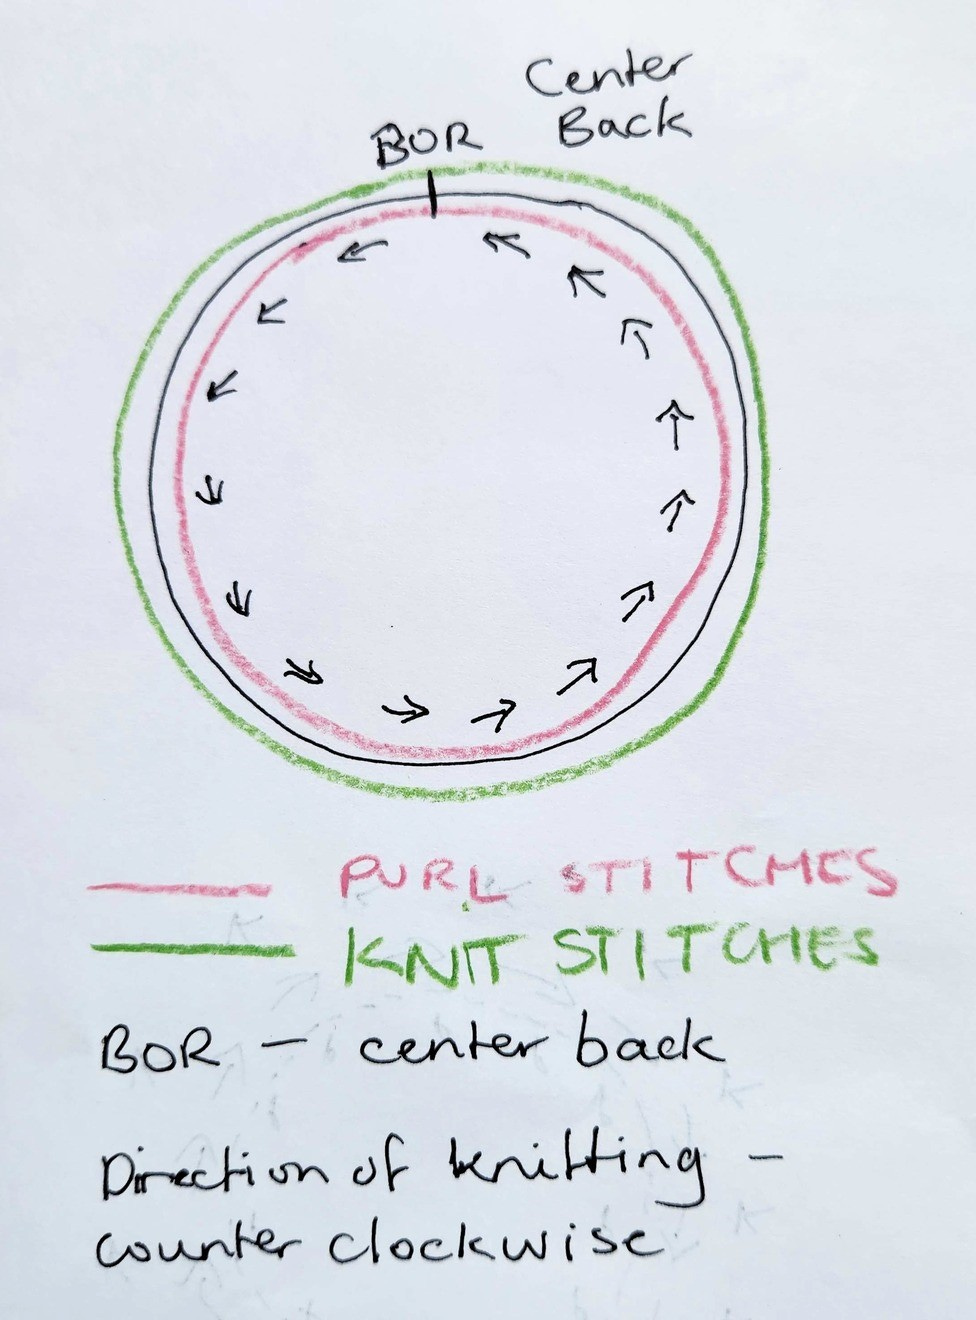 Center
Back
BOR
PURL STITCHES
KNIT STITCHES
BOR - center back
Direction of knitting -
counter clockwise